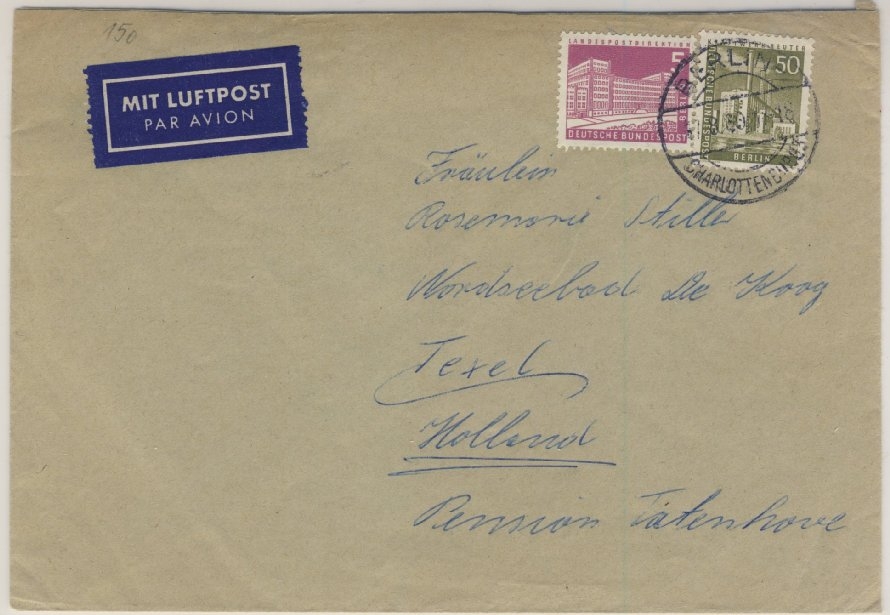 150
MIT LUFTPOST
PAR AVION
LANDESPOSTDIREKTION
5
BERLIN
DEUTSCHE BUNDESPOST
REUTER
50
DEUTSCHE BUNDESPOST
BERLIN
BERLIN
CHARLOTTENBURG
Fräulein
Rosemarie Stille
Nordseebad De Koog
Texel
Holland
Pension Tatenhove